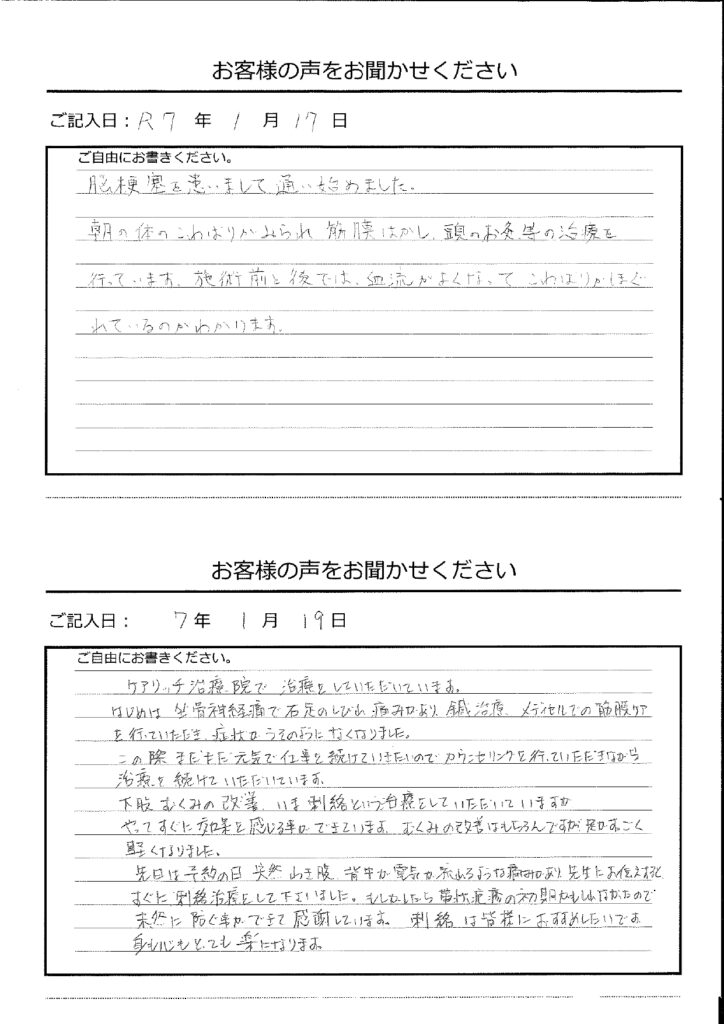 お客様の声をお聞かせください
ご記入日：R7 年 1 月 17 日
ご自由にお書きください。
脳梗塞を患いまして通い始めました。
朝の体のこわばりがみられ 筋膜はがし、頭のお灸等の治療を
行っています。施術前と後では、血流がよくなって こわばりがほぐ
れているのがわかります。
お客様の声をお聞かせください
ご記入日： 7 年 1 月 19 日
ご自由にお書きください。
ケアリッチ治療院で 治療をしていただいています。
はじめは 坐骨神経痛で右足のしびれ 痛みがあり、鍼治療、メディセルでの筋膜ケア
を行っていただき、症状がうそのようになくなりました。
この際 まだまだ元気で仕事を続けていきたいのでカウンセリングを行っていただきながら
治療を続けていただいています。
下肢むくみの改善、いま 刺絡という治療をしていただいていますが
やってすぐに効果を感じる事ができています。むくみの改善はもちろんですが 足がすごく
軽くなりました。
先日は予約の日 突然 わき腹、背中が電気が流れるような痛みがあり 先生にお伝えすると
すぐに刺絡治療をして下さいました。もしかしたら帯状疱疹の初期かもしれなかったので
未然に防ぐ事ができて感謝しています。刺絡は皆様におすすめしたいです
身も心もとても楽になります。